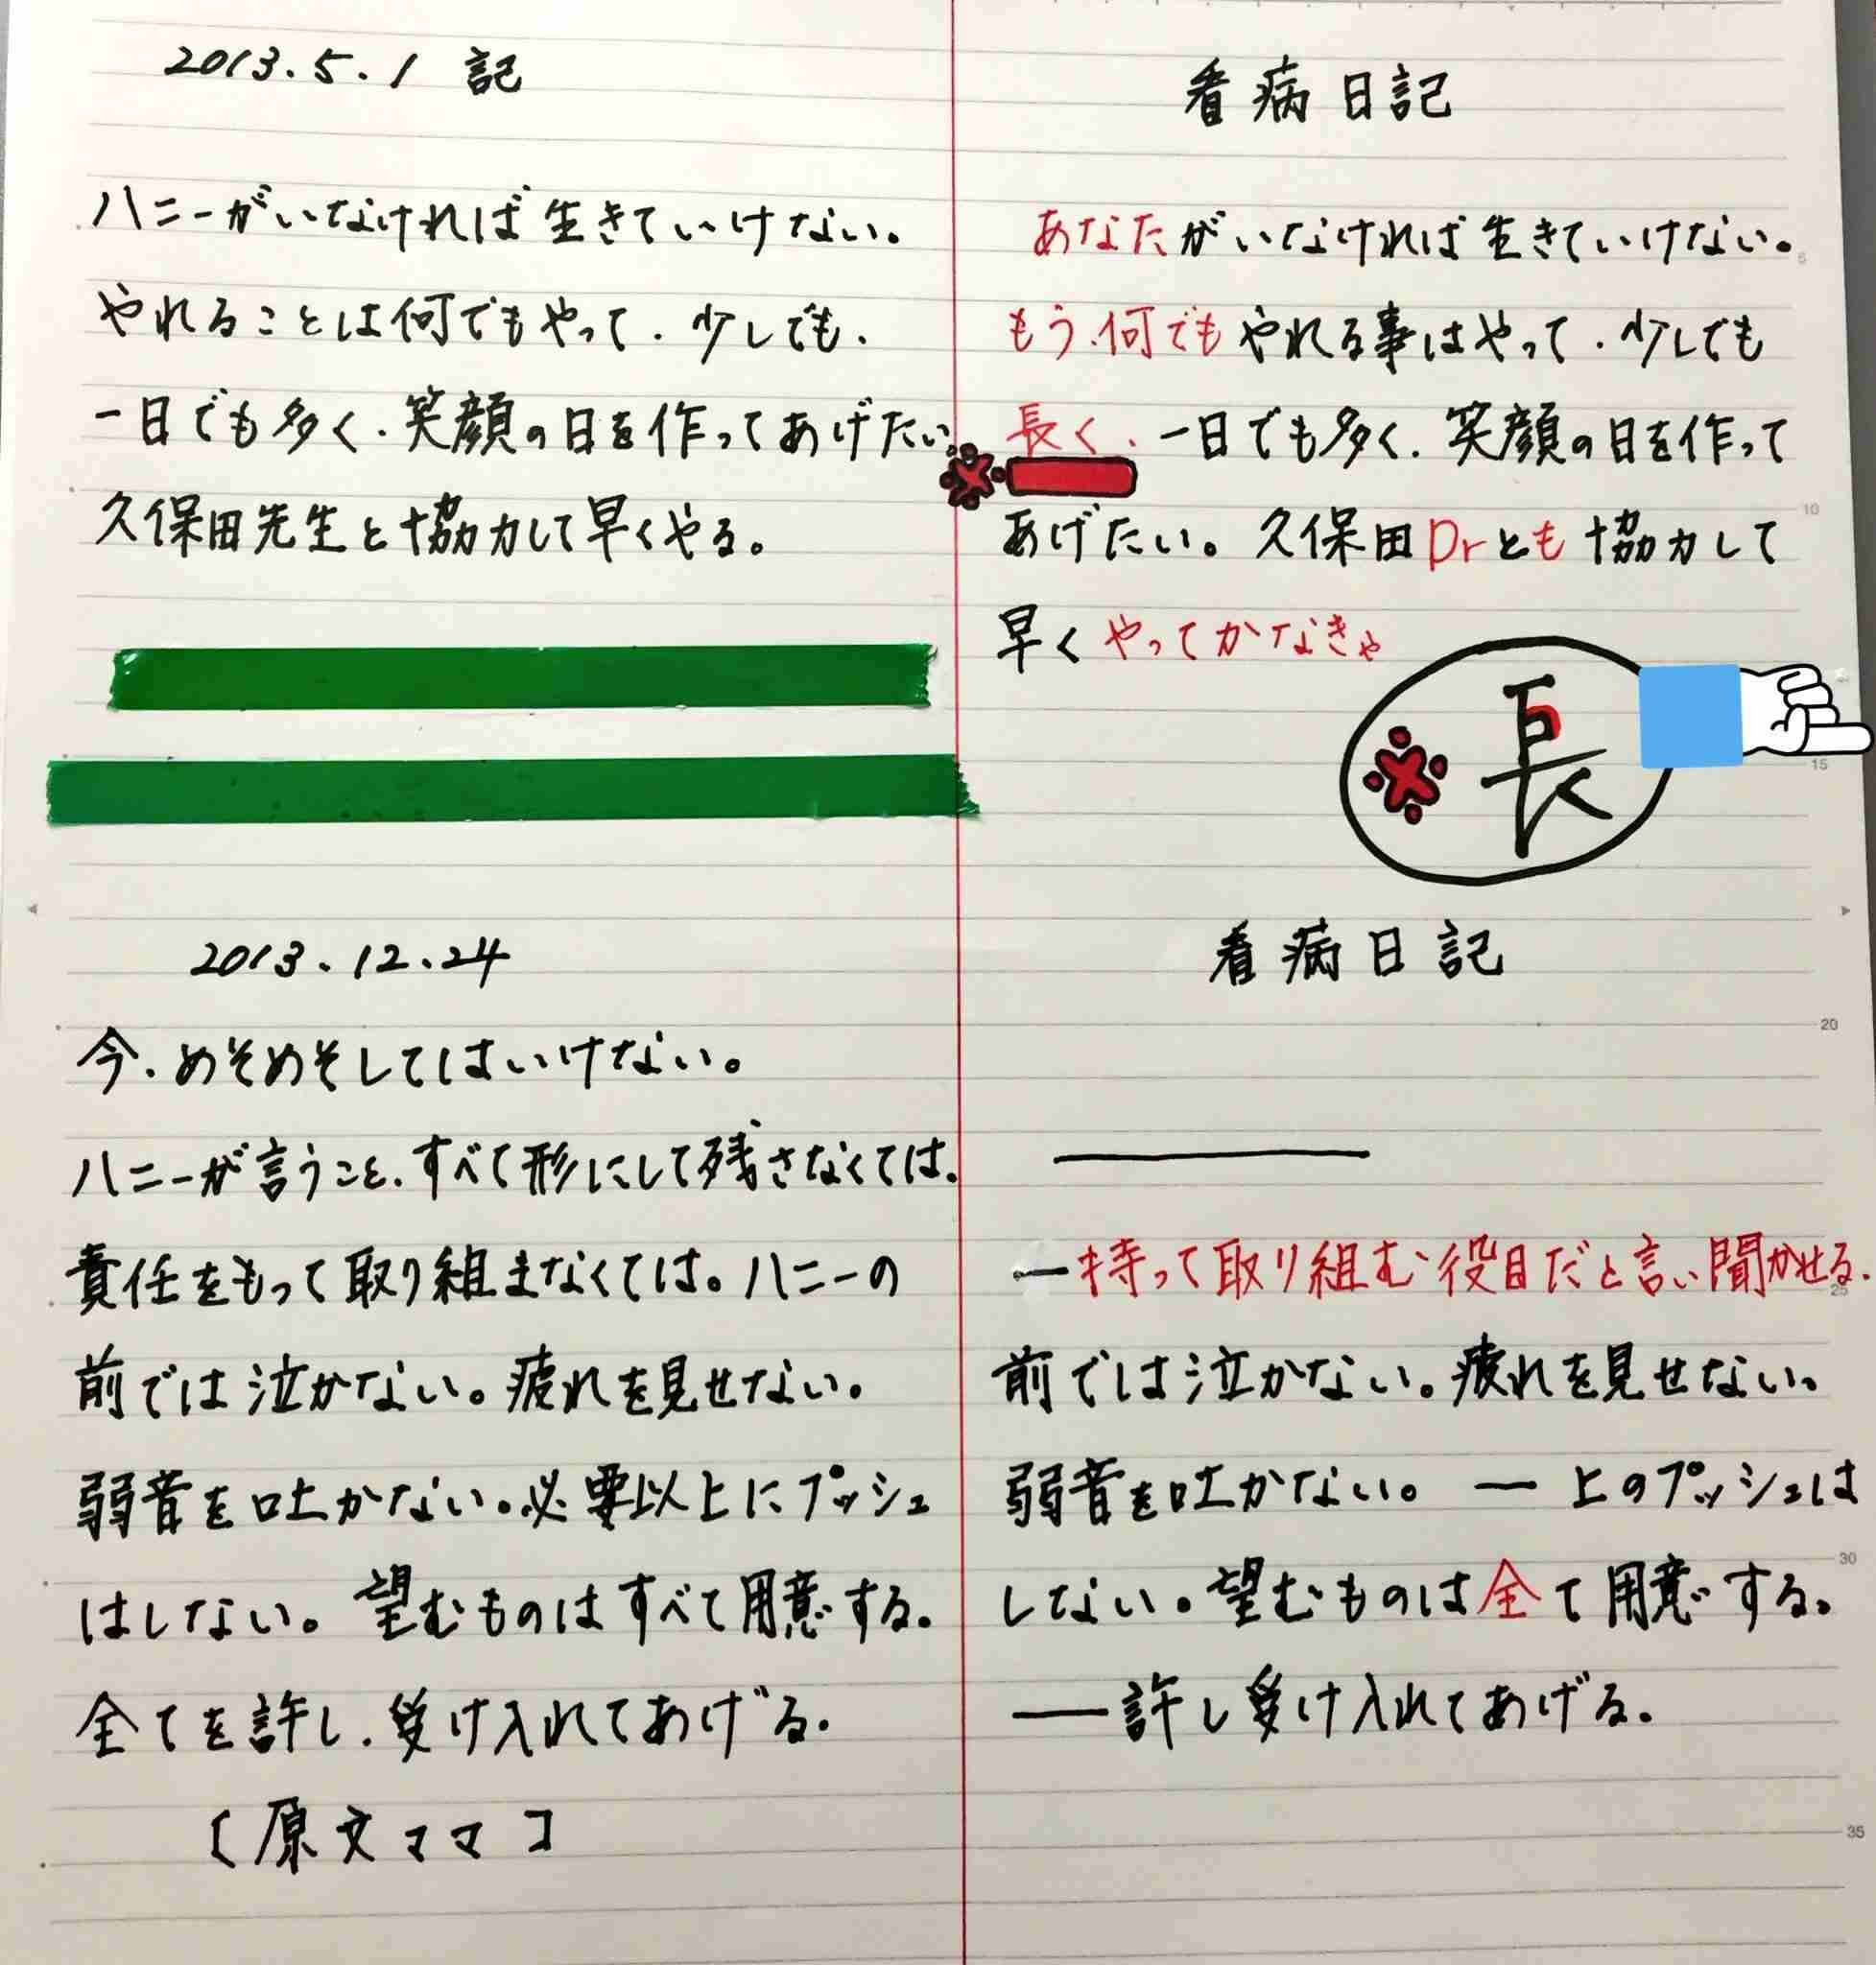 2013.5.1 記
ハニーがいなければ生きていけない。
やれることは何でもやって、少しでも、
一日でも多く、笑顔の日を作ってあげたい。
久保田先生と協力して早くやる。
2013.12.24
今、めそめそしてはいけない。
ハニーが言うこと、すべて形にして残さなくては。
責任をもって取り組まなくては。ハニーの
前では泣かない。疲れを見せない。
弱音を吐かない。必要以上にプッシュ
はしない。望むものはすべて用意する。
全てを許し、受け入れてあげる。
〔原文ママ〕
看病日記
あなたがいなければ生きていけない。
もう、何でもやれる事はやって、少しでも
長く、一日でも多く、笑顔の日を作って
※
あげたい。久保田Drとも協力して
早くやってかなきゃ
※長
看病日記
―持って取り組む役目だと言い聞かせる。
前では泣かない。疲れを見せない。
弱音を吐かない。―上のプッシュは
しない。望むものは全て用意する。
―許し受け入れてあげる。
5
10
15
20
25
30
35